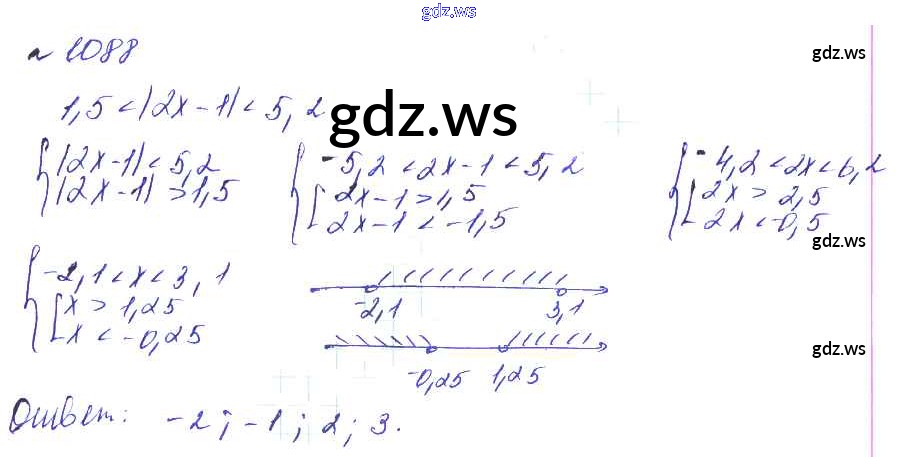 gdz.ws
№ 1088
gdz.ws
1,5 < |2x - 1| < 5,2
gdz.ws
|2x - 1| < 5,2
|2x - 1| > 1,5
-5,2 < 2x - 1 < 5,2
2x - 1 > 1,5
2x - 1 < -1,5
-4,2 < 2x < 6,2
2x > 2,5
2x < -0,5
gdz.ws
-2,1 < x < 3,1
x > 1,25
x < -0,25
-2,1 3,1
gdz.ws
-0,25 1,25
Ответ: -2; -1; 2; 3.